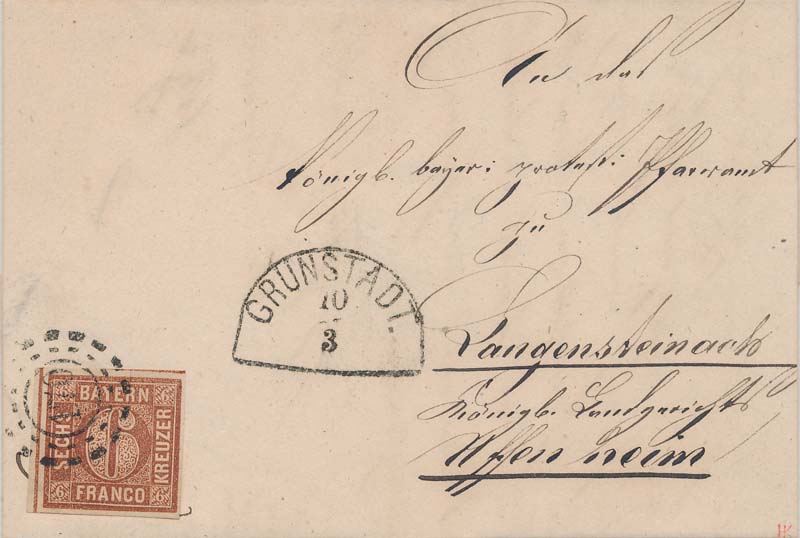 An das
Königl. bayer: protest: Pfarramt
zu
Langensteinach
Königl. Landgerichts
Uffenheim
GRUNSTADT.
10
3
BAYERN
SECHS
6
KREUZER
FRANCO
6 6
6 6
HK